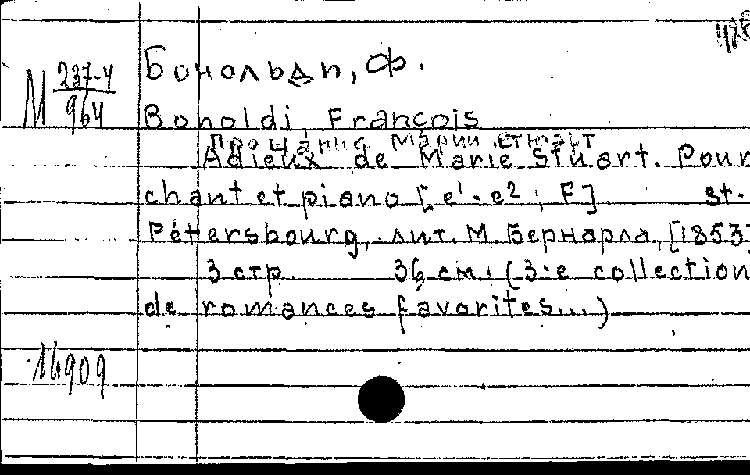 Бонольди, Ф.
М 237-4
964
Bonoldi, François
Прощание Марии Стюарт
Adieux de Marie Stuart. Pour
chant et piano [e¹-e²; F] St.-
Pétersbourg, лит. М. Бернарда, [1853]
3 стр. 36 см. (3-e collection
de romances favorites...)
16909